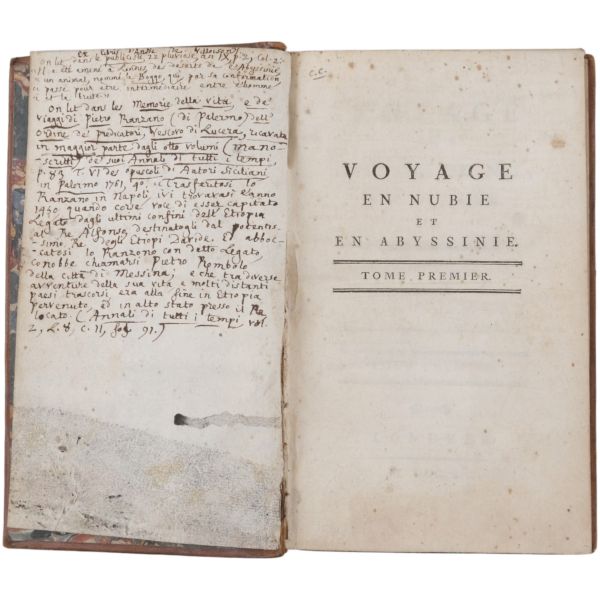 Ex libris d'Ansse de Villoison
On lit dans le publiciste, 22 pluviose, an IX, p. 2, Col. 2:
a été amené à des déserts de l'Abyssinie,
un animal, nommé le Boggo, qui, par sa conformation,
passe pour être intermédiaire entre l'homme
et la brute"
On lit dans les Memorie della vita e de'
viaggi di Pietro Ranzano (di Palermo) dell'
Ordine de' predicatori, Vescovo di Lucera, ricavata
in maggior parte dagli otto volumi (Mano-
scritti) de' suoi Annali di tutti i tempi,
p. 83 T. VI des opuscoli di Autori Siciliani
in Palermo 1761, 4o. Trasferitosi lo
Ranzano in Napoli, ivi trovavasi l'anno
1450 quando corse voce di esser capitato
Legato dagli ultimi confini dell'Etiopia
al Re Alfonso, destinatogli dal potentis-
simo Re degli Etiopi Davide. Ed abboc-
catosi lo Ranzano con detto Legato,
conobbe chiamarsi Pietro Rombolo
della città di Messina; e che tra diverse
avventure della sua vita e molti distanti
paesi trascorsi, era alla fine in Etiopia
pervenuto, ed in alto stato presso il Re
locato. (Annali di tutti i tempi vol.
2, L. 8, C. II, fog. 91.)
c.c.
VOYAGE
EN NUBIE
ET
EN ABYSSINIE.
TOME PREMIER.